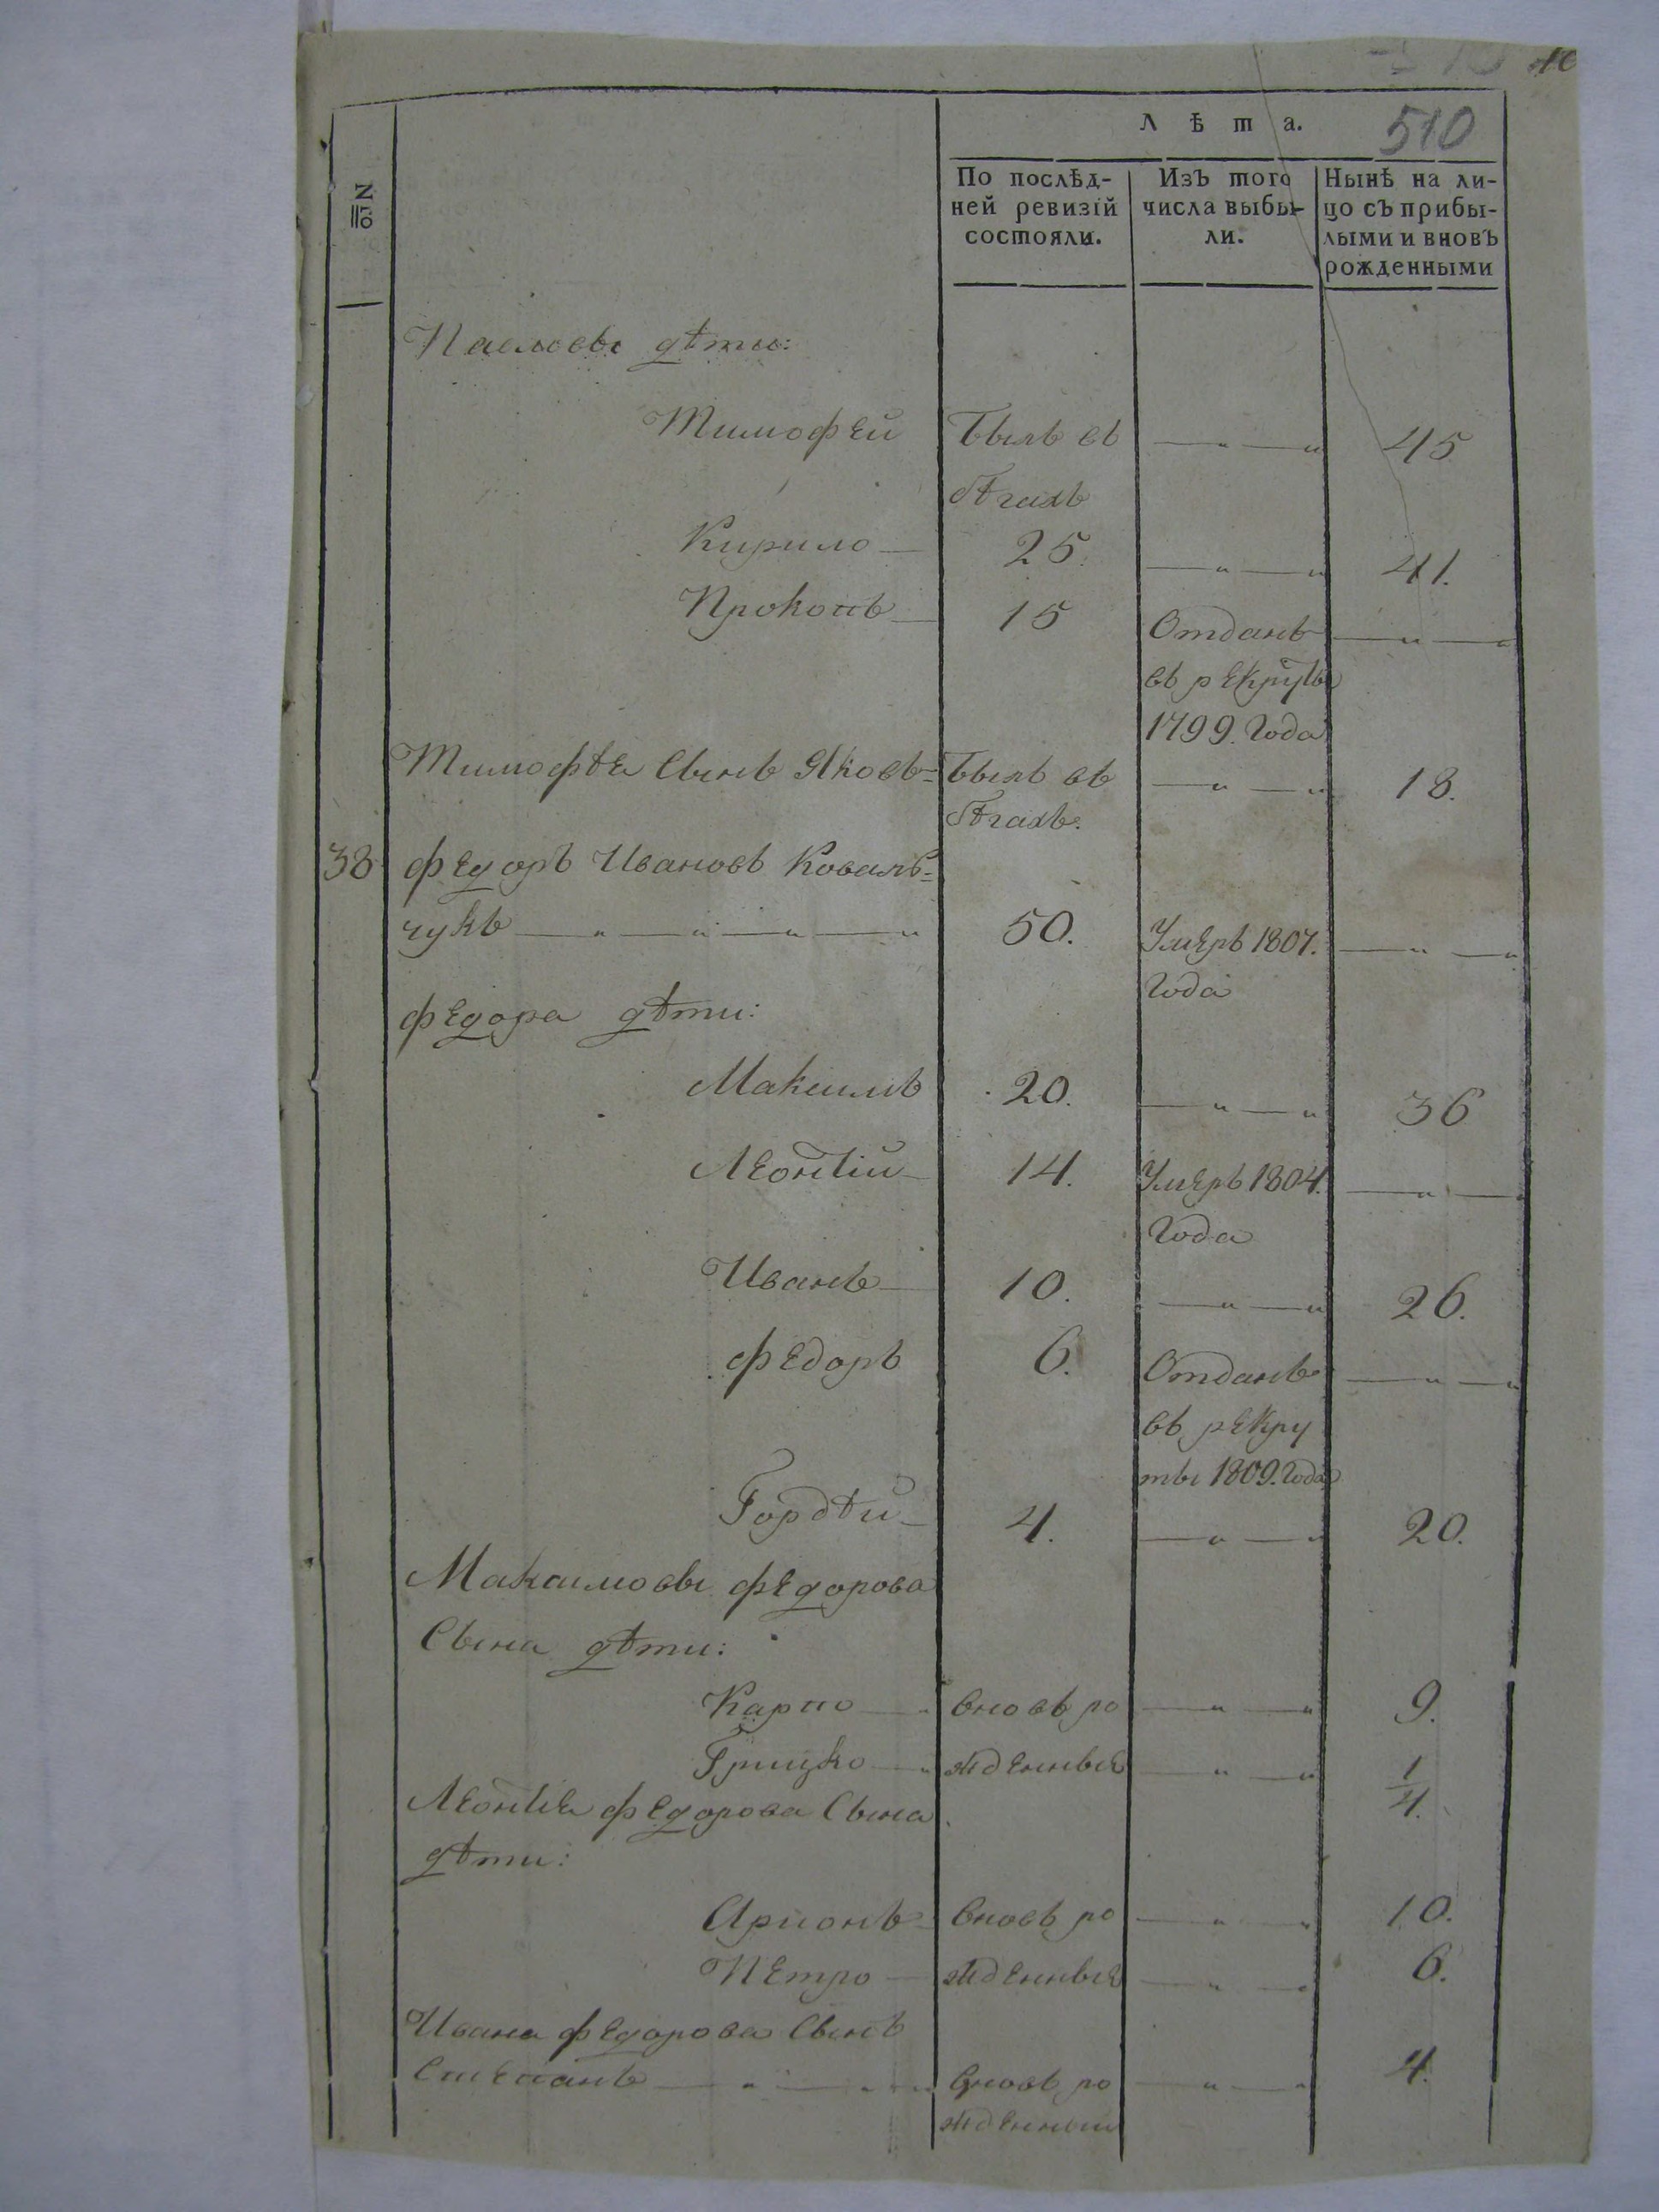 510
Лѣта.
№
По послѣд-
ней ревизій
состояли.
Изъ того
числа выбы-
ли.
Нынѣ на ли-
цо съ прибы-
лыми и вновь
рожденными
Павловы дѣти:
Тимофей Былъ въ —„—„ 45
бѣгахъ
Кирило — 25. —„—„ 41.
Прокопъ — 15 Отданъ —„—„
въ рекруты
1799. Года
Тимофѣя Сынъ Яковъ= Былъ въ —„—„ 18.
бѣгахъ.
38 Федоръ Ивановъ Коваль=
чукъ —„—„—„—„ 50. Умеръ 1807. —„—„
Года
Федора дѣти:
Максимъ 20. —„—„ 36
Леонтій — 14. Умеръ 1804. —„—
Года
Иванъ — 10. —„—„ 26.
Федоръ 6. Отданъ —„—„
въ рекру
ты 1809. Года
Гордѣй — 4. —„—„ 20.
Максимовы Федорова
Сына дѣти:
Карпо —„ вновь ро —„—„ 9.
Грицко —„ жденныя —„—„ 1/4.
Леонтія Федорова Сына
дѣти:
вновь ро —„—„ 10.
Петро — жденныя —„—„ 6.
Ивана Федорова Сынъ
Степанъ —„—„—„ вновь ро —„—„ 4.
жденный